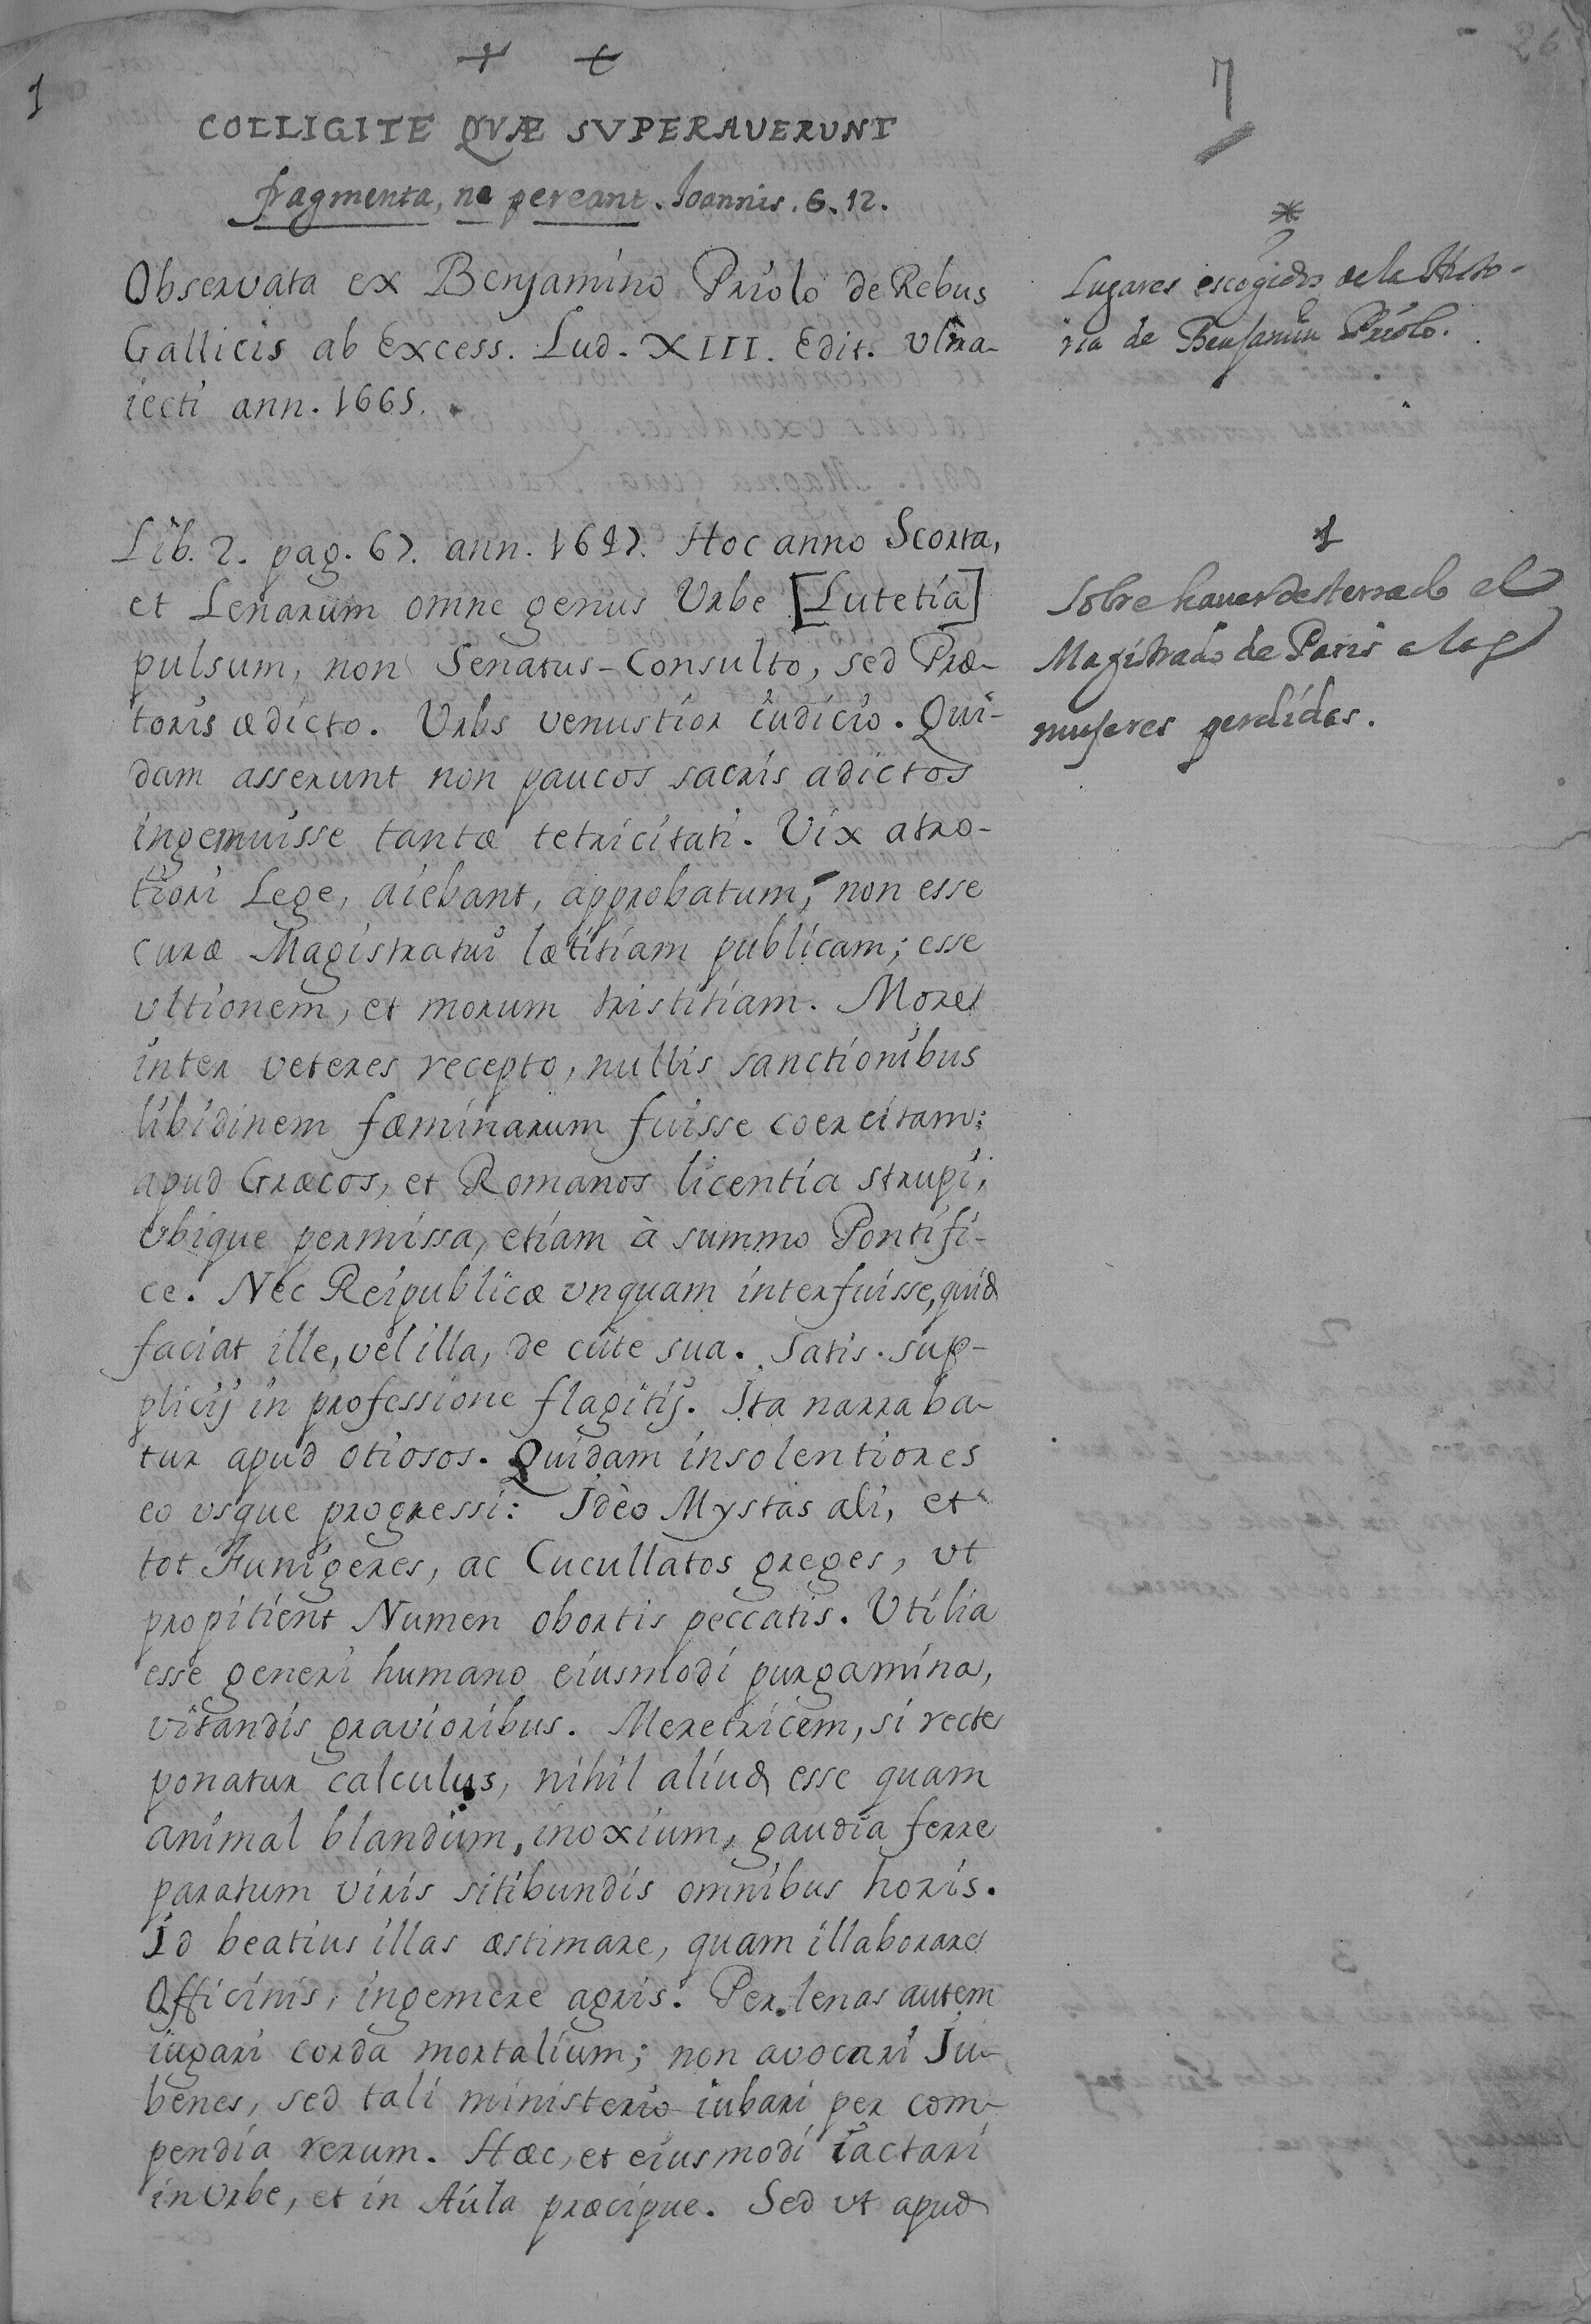 + +
1
7
26
COLLIGITE QVÆ SVPERAVERVNT
fragmenta, ne pereant. Ioannis. 6. 12.
Observata ex Benjamino Priolo de Rebus
Gallicis ab Excess. Lud. XIII. Edit. Vltra-
iecti ann. 1665.
*
Lugares escogidos de la Histo-
ria de Benjamin Priolo.
Lib. 2. pag. 67. ann. 1647. Hoc anno Scorta,
et Lenarum omne genus Vrbe [Lutetia]
pulsum, non Senatus-Consulto, sed Præ-
toris ædicto. Vrbs venustior iudicio. Qui-
dam asserunt non paucos sacris adictos
ingemuisse tantæ tetricitati. Vix atro-
tiori Lege, aiebant, approbatum, non esse
curæ Magistratui lætitiam publicam; esse
vltionem, et morum tristitiam. More
inter veteres recepto, nullis sanctionibus
libidinem fæminarum fuisse coercitam:
apud Græcos, et Romanos licentia strupi,
vbique permissa, etiam à summo Pontifi-
ce. Nec Reipublicæ vnquam interfuisse, quid
faciat ille, vel illa, de cute sua. Satis sup-
plicij in professione flagitij. Ita narraba-
tur apud otiosos. Quidam insolentiores
eo vsque progressi: Ideò Mystas ali, et
tot Funigeres, ac Cucullatos greges, vt
propitient Numen obortis peccatis. Vtilia
esse generi humano eiusmodi purgamina,
vitandis gravioribus. Meretricem, si recte
ponatur calculus, nihil aliud esse quam
animal blandum, inoxium, gaudia ferre
paratum viris sitibundis omnibus horis.
Id beatius illas æstimare, quam illaborare
Officinis, ingemere agris. Per lenas autem
iugari corda mortalium; non avocari Iu-
benes, sed tali ministerio iubari per com-
pendia rerum. Hæc, et eiusmodi iactari
in Vrbe, et in Aula præcipue. Sed vt apud
1
Sobre hauer desterrado el
Magistrado de Paris a las
mujeres perdidas.